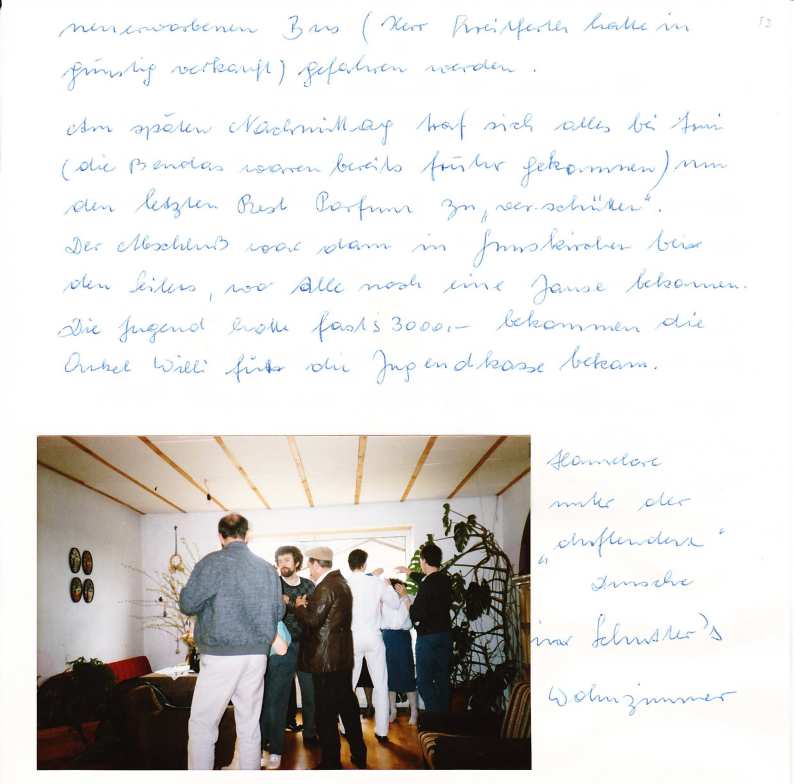 neuerworbenen Bus (Herr Kreilferth hatte in
günstig verkauft) gefahren werden.
Am späten Nachmittag traf sich alles bei
(die Bendas waren bereits früher gekommen) um
den letzten Rest Parfum zu „ver-schütten“.
Der Abschluß war dann in Gunskirchen bei
den Seilers, wo Alle noch eine Jause bekamen.
Die Jugend hatte fast S 3000,- bekommen die
Onkel Willi für die Jugendkasse bekam.
Hannelore
unter der
„duftenden“
Dusche
im Schuster's
Wohnzimmer